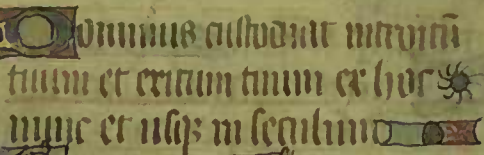 Dominus custodiat introitū
tuum et exitum tuum ex hoc
nunc et usqꝫ in seculum